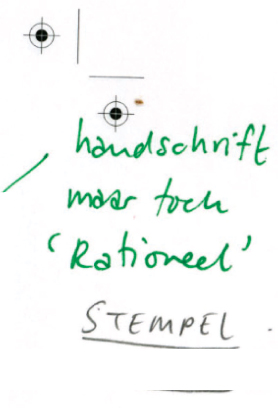 handschrift
maar toch
‘Rationeel’
STEMPEL